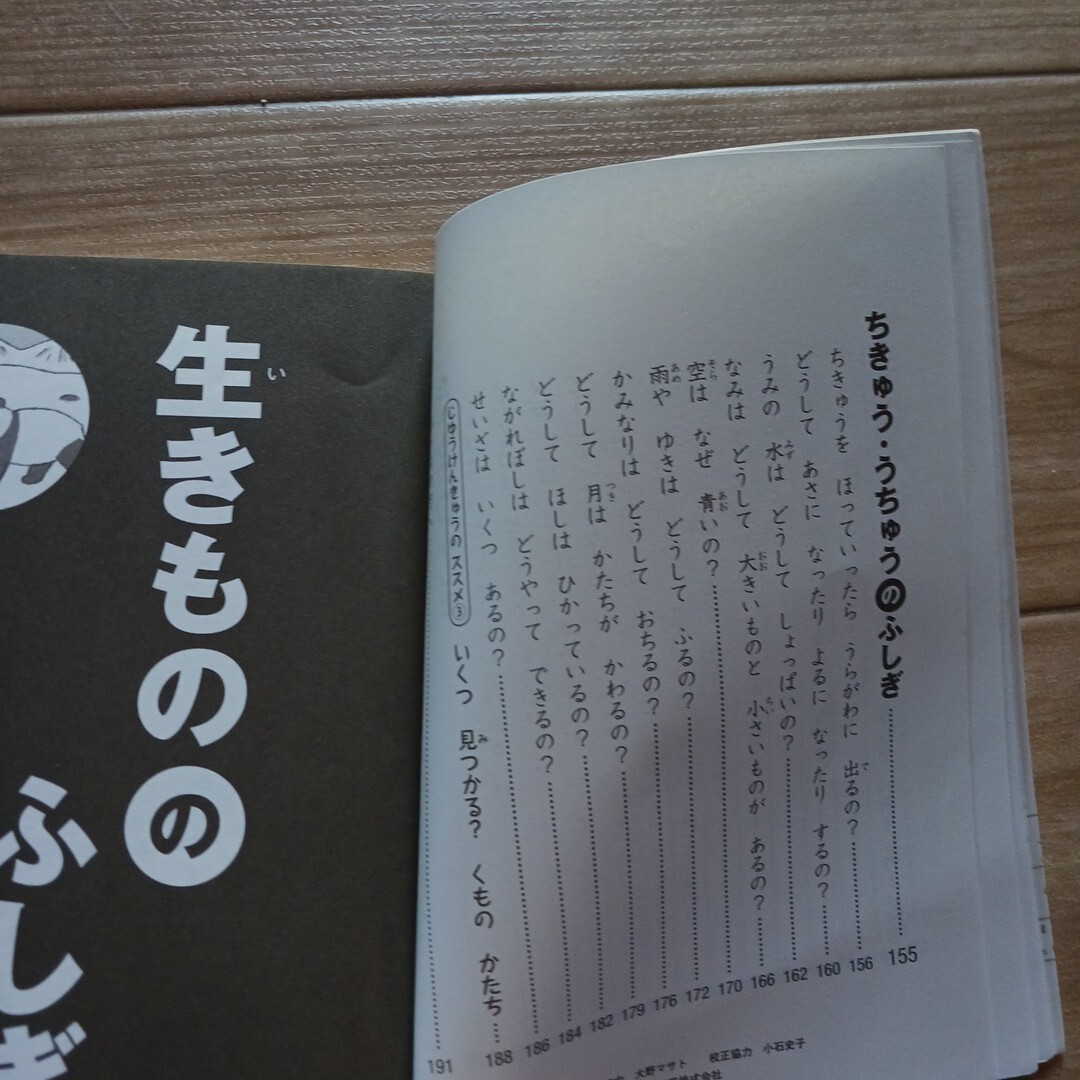 ちきゅう・うちゅうのふしぎ……155
ちきゅうを ほっていったら うらがわに 出るの？……156
どうして あさに なったり よるに なったり するの？……160
うみの 水は どうして しょっぱいの？……162
なみは どうして 大きいものと 小さいものが あるの？……166
空は なぜ 青いの？……170
雨や ゆきは どうして ふるの？……172
かみなりは どうして おちるの？……176
どうして 月は かたちが かわるの？……179
どうして ほしは ひかっているの？……182
ながれぼしは どうやって できるの？……184
せいざは いくつ あるの？……186
じゆうけんきゅうの ススメ③ いくつ 見つかる？ くもの かたち……188
191
大野マサト 校正協力 小石史子
株式会社
生きものの
ふしぎ